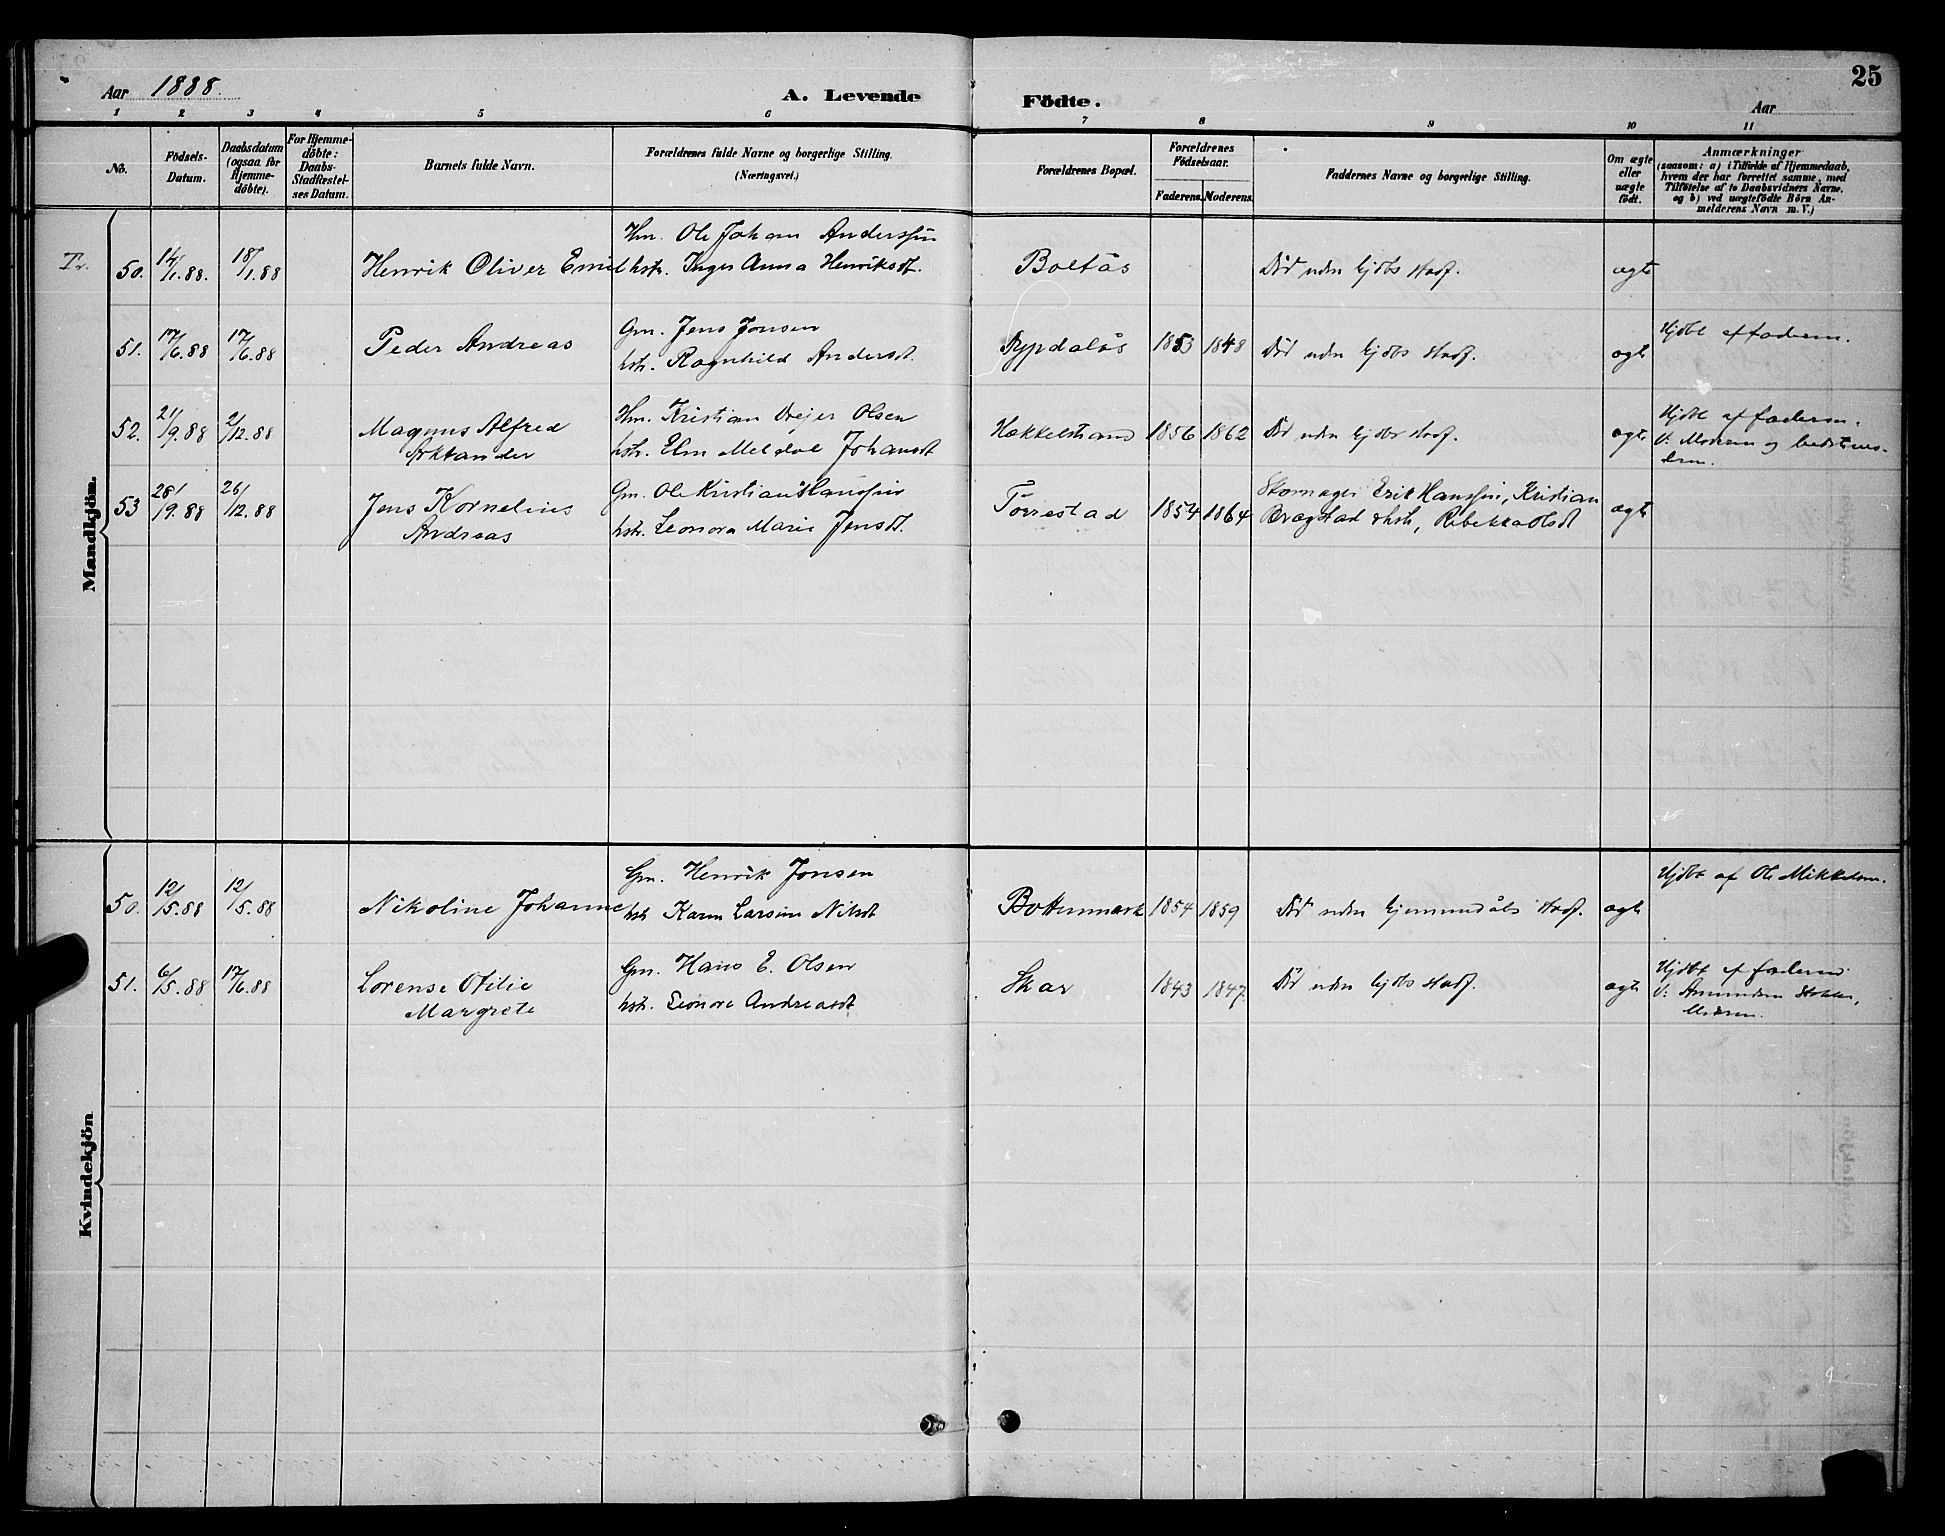 25
Aar 1888.
A. Levende Födte.
Aar
1 2 3 4 5 6 7 8 9 10 11
No.
Födsels-Datum.
Daabsdatum (ogsaa for Hjemme-döbte).
For Hjemme-döbte: Daabs-Stadfæstel-ses Datum.
Barnets fulde Navn.
Forældrenes fulde Navne og borgerlige Stilling. (Næringsvei.)
Forældrenes Bopæl.
Forældrenes Födselsaar.
Faderens. Moderens.
Faddernes Navne og borgerlige Stilling.
Om ægte eller uægte födt.
Anmærkninger
(saasom: a) i Tilfælde af Hjemmedaab,
hvem der har forrettet samme, med
Tilföielse af to Daabsvidners Navne.
og b) ved uægtefödte Börn An-
melderens Navn m. V.)
Mandkjön.
Tr. 50. 14/1.88. 18/1.88 Henrik Oliver Emil
Hm. Ole Johan Anderssen
hstr. Inger Anna Henriksdt.
Boltås
Död uden hjdbs stadf.
ægte
51. 17/6.88 17/6.88 Peder Andreas
Gm. Jens Jonsen
hstr. Ragnhild Andersdt.
Dypdalås 1853 1848
Död uden hjdbs stadf.
ægte
Hjdbt af faderen.
52. 21/9.88 2/12.88 Magnus Alfred
Arktander
Hm. Kristian Olsen
hstr. Meldal Johansdt
Hækkelstrand 1856 1862
Död uden hjdbs stadf.
ægte
Hjdbt af faderen.
V: Moderen og
53 28/9.88 26/12.88 Jens Kornelius
Andreas
Gm. Ole Kristian Hanssen
hstr. Leonora Marie Jensdt.
Torrestad 1854 1864
Erik Hanssen, Kristian
Bragstad & hstr, Rebekka Olsdt
ægte
Kvindekjön
50. 12/5.88 12/5.88 Nikoline Johanne
Gm. Henrik Jonsen
hstr Karen Larsine Nilsdt
Bottenmark 1854 1859
Död uden hjemmedåbs stadf.
ægte
Hjdbt af Ole Mikkelsen.
51. 6/5.88 17/6.88 Lorense Otilie
Margrete
Gm. Hans E. Olsen
hstr. Leonore Andreasdt
Skar 1843 1847.
Död uden hjdbs stadf.
ægte
Hjdbt af faderen
V: Amundsen
Moderen.